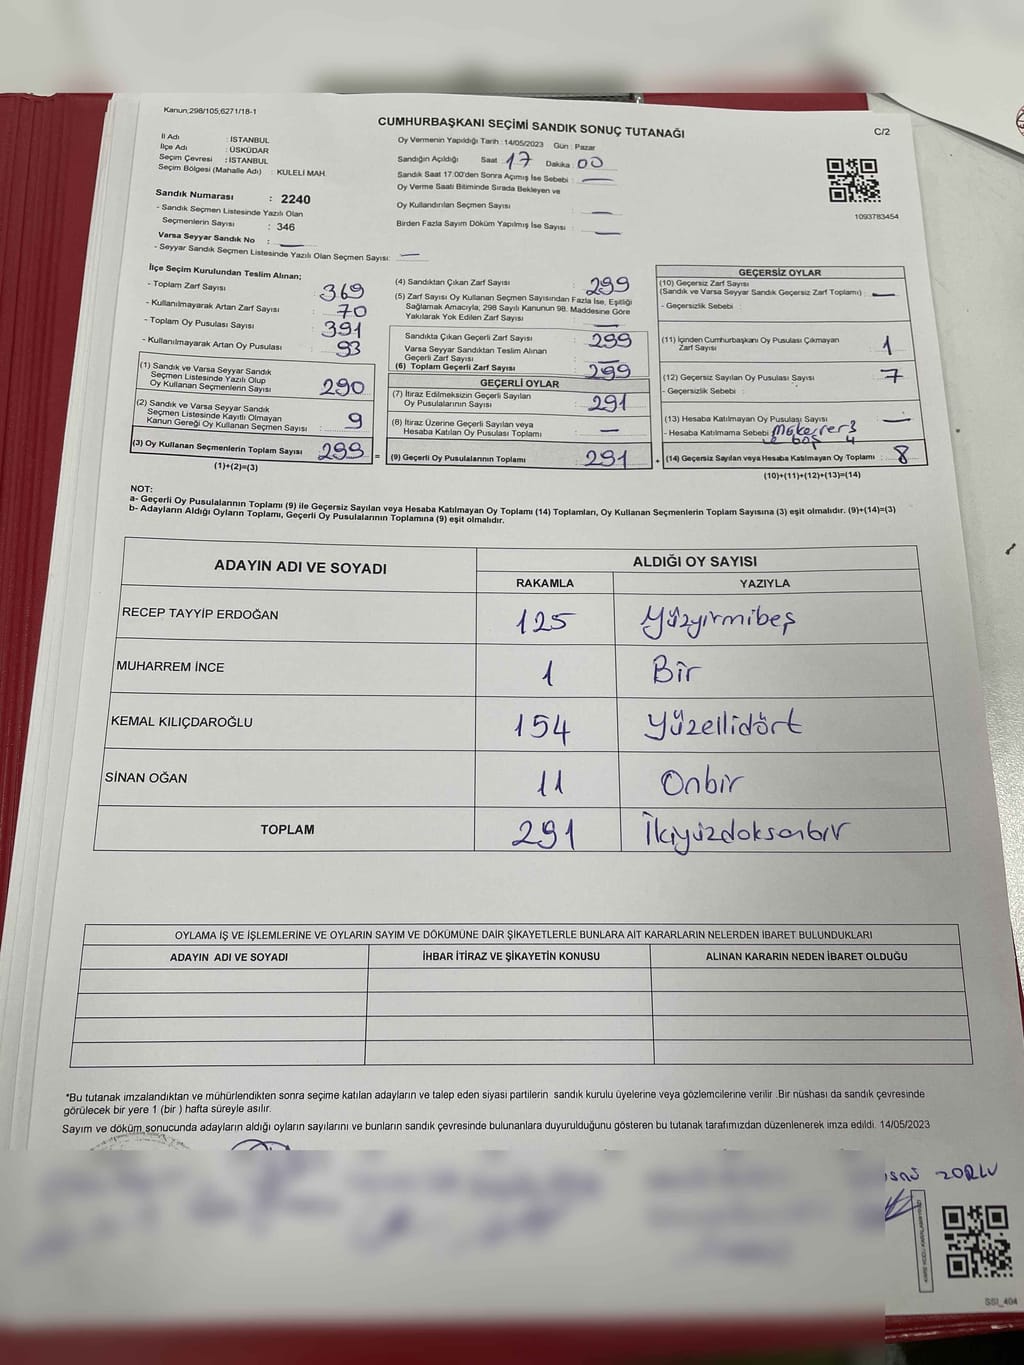 Kanun;298/105;6271/18-1
CUMHURBAŞKANI SEÇİMİ SANDIK SONUÇ TUTANAĞI
C/2
İl Adı : İSTANBUL
İlçe Adı : ÜSKÜDAR
Seçim Çevresi : İSTANBUL
Seçim Bölgesi (Mahalle Adı) : KULELİ MAH.
Sandık Numarası : 2240
- Sandık Seçmen Listesinde Yazılı Olan
Seçmenlerin Sayısı : 346
Varsa Seyyar Sandık No :
- Seyyar Sandık Seçmen Listesinde Yazılı Olan Seçmen Sayısı: —
Oy Vermenin Yapıldığı Tarih : 14/05/2023 Gün : Pazar
Sandığın Açıldığı Saat : 17 Dakika : 00
Sandık Saat 17:00'den Sonra Açımış İse Sebebi : —
Oy Verme Saati Bitiminde Sırada Bekleyen ve
Oy Kullandırılan Seçmen Sayısı : —
Birden Fazla Sayım Döküm Yapılmış İse Sayısı : —
1093783454
İlçe Seçim Kurulundan Teslim Alınan;
- Toplam Zarf Sayısı : 369
- Kullanılmayarak Artan Zarf Sayısı : 70
- Toplam Oy Pusulası Sayısı : 391
- Kullanılmayarak Artan Oy Pusulası : 93
(1) Sandık ve Varsa Seyyar Sandık
Seçmen Listesinde Yazılı Olup
Oy Kullanan Seçmenlerin Sayısı : 290
(2) Sandık ve Varsa Seyyar Sandık
Seçmen Listesinde Kayıtlı Olmayan
Kanun Gereği Oy Kullanan Seçmen Sayısı : 9
(3) Oy Kullanan Seçmenlerin Toplam Sayısı : 299 =
(1)+(2)=(3)
(4) Sandıktan Çıkan Zarf Sayısı : 299
(5) Zarf Sayısı Oy Kullanan Seçmen Sayısından Fazla İse, Eşitliği
Sağlamak Amacıyla; 298 Sayılı Kanunun 98. Maddesine Göre
Yakılarak Yok Edilen Zarf Sayısı : —
Sandıkta Çıkan Geçerli Zarf Sayısı : 299
Varsa Seyyar Sandıktan Teslim Alınan
Geçerli Zarf Sayısı : —
(6) Toplam Geçerli Zarf Sayısı : 299
GEÇERLİ OYLAR
(7) İtiraz Edilmeksizin Geçerli Sayılan
Oy Pusulalarının Sayısı : 291
(8) İtiraz Üzerine Geçerli Sayılan veya
Hesaba Katılan Oy Pusulası Toplamı : —
(9) Geçerli Oy Pusulalarının Toplamı : 291 +
GEÇERSİZ OYLAR
(10) Geçersiz Zarf Sayısı
(Sandık ve Varsa Seyyar Sandık Geçersiz Zarf Toplamı) : —
- Geçersizlik Sebebi :
(11) İçinden Cumhurbaşkanı Oy Pusulası Çıkmayan
Zarf Sayısı : 1
(12) Geçersiz Sayılan Oy Pusulası Sayısı : 7
- Geçersizlik Sebebi :
(13) Hesaba Katılmayan Oy Pusulası Sayısı : —
- Hesaba Katılmama Sebebi : Mükerrer 3
ve boş 4
(14) Geçersiz Sayılan veya Hesaba Katılmayan Oy Toplamı : 8
(10)+(11)+(12)+(13)=(14)
NOT:
a- Geçerli Oy Pusulalarının Toplamı (9) ile Geçersiz Sayılan veya Hesaba Katılmayan Oy Toplamı (14) Toplamları, Oy Kullanan Seçmenlerin Toplam Sayısına (3) eşit olmalıdır. (9)+(14)=(3)
b- Adayların Aldığı Oyların Toplamı, Geçerli Oy Pusulalarının Toplamına (9) eşit olmalıdır.
ADAYIN ADI VE SOYADI
ALDIĞI OY SAYISI
RAKAMLA YAZIYLA
RECEP TAYYİP ERDOĞAN 125 Yüzyirmibeş
MUHARREM İNCE 1 Bir
KEMAL KILIÇDAROĞLU 154 Yüzellidört
SİNAN OĞAN 11 Onbir
TOPLAM 291 İkiyüzdoksanbir
OYLAMA İŞ VE İŞLEMLERİNE VE OYLARIN SAYIM VE DÖKÜMÜNE DAİR ŞİKAYETLERLE BUNLARA AİT KARARLARIN NELERDEN İBARET BULUNDUKLARI
ADAYIN ADI VE SOYADI İHBAR İTİRAZ VE ŞİKAYETİN KONUSU ALINAN KARARIN NEDEN İBARET OLDUĞU
*Bu tutanak imzalandıktan ve mühürlendikten sonra seçime katılan adayların ve talep eden siyasi partilerin sandık kurulu üyelerine veya gözlemcilerine verilir .Bir nüshası da sandık çevresinde
görülecek bir yere 1 (bir ) hafta süreyle asılır.
Sayım ve döküm sonucunda adayların aldığı oyların sayılarını ve bunların sandık çevresinde bulunanlara duyurulduğunu gösteren bu tutanak tarafımızdan düzenlenerek imza edildi. 14/05/2023
ZORLU
SSI_404